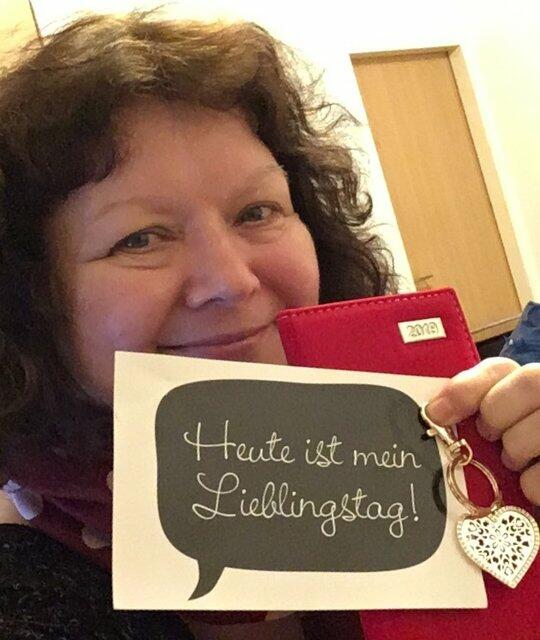 2018
Heute ist mein
Lieblingstag!